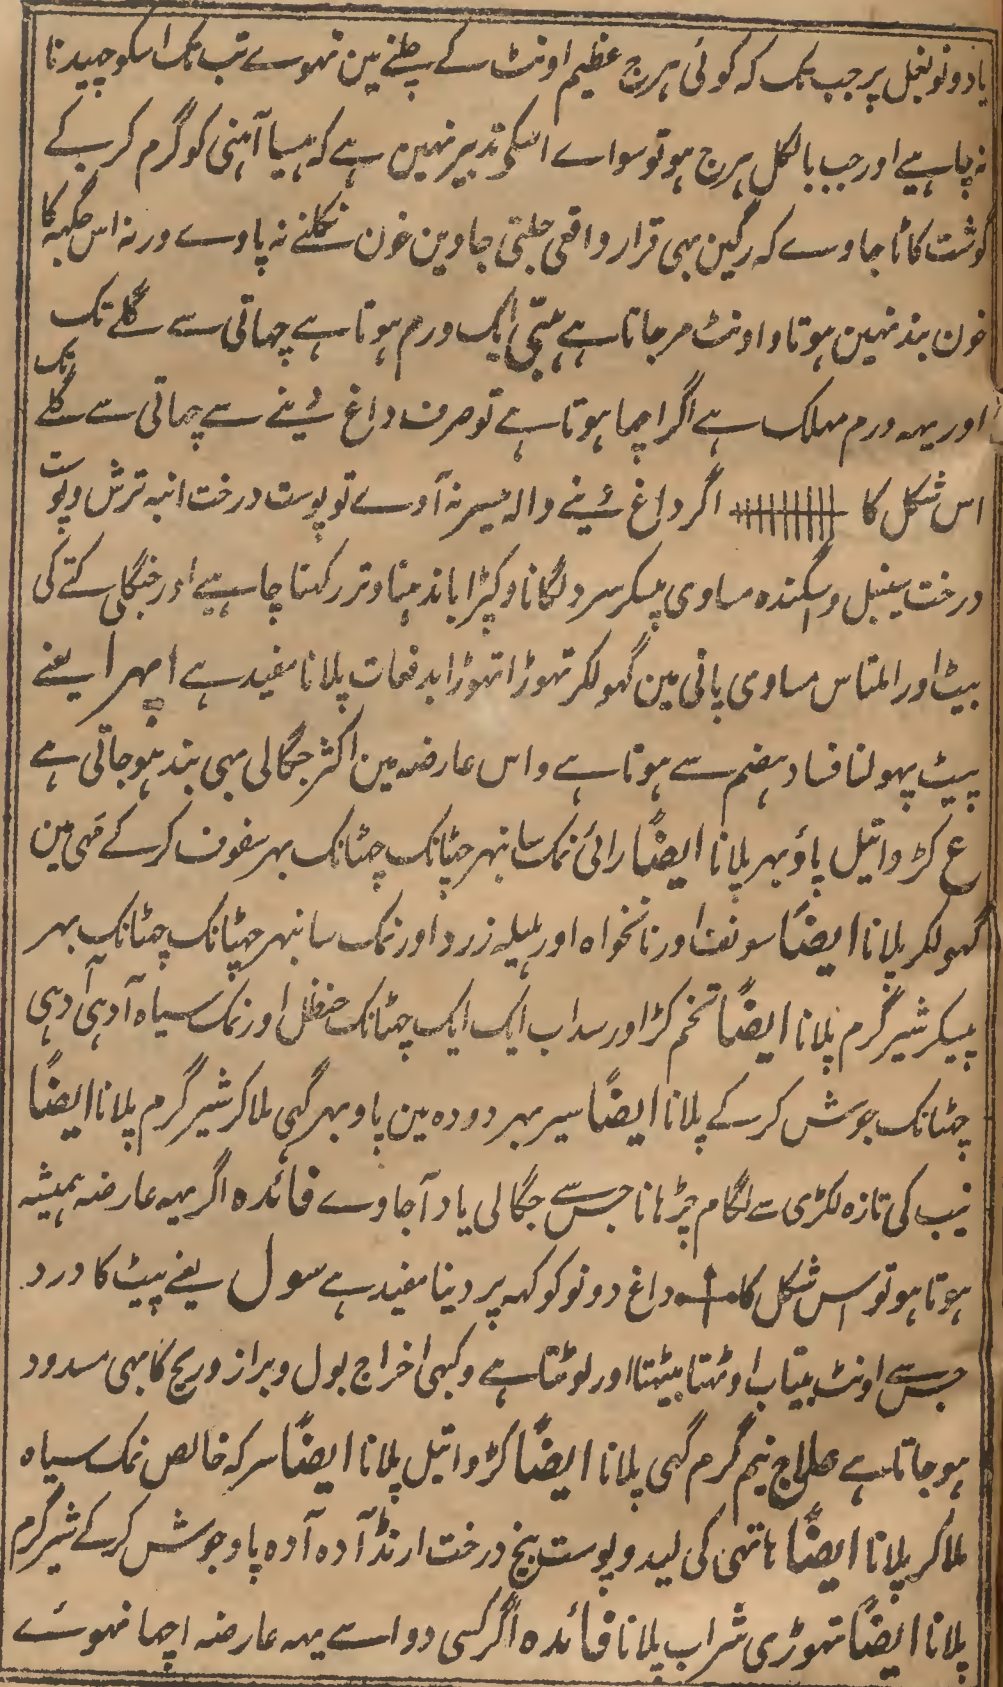 یا دونو بغل پر جب تک کہ کوئی ہرج عظیم اونٹ کے چلنے مین نہووے تب تک اسکو چھیدنا
نہ چاہیے اور جب بالکل ہرج ہو تو سواے اسکی تدبیر نہین ہے کہ ہسیا آہنی کو گرم کر کے
گوشت کاٹا جاوے کہ رگین بہی قرار واقعی جلتی جاوین خون نکلنے نہ پاوے ورنہ اس جگہہ کا
خون بند نہین ہوتا و اونٹ مر جاتا ہے ایک ورم ہوتا ہے چہاتی سے گلے تک
اور یہہ ورم مہلک ہے اگر اچہا ہوتا ہے تو صرف داغ دینے سے چہاتی سے گلے تک
اس شکل کا اگر داغ دینے والہ میسر نہ آوے تو پوست درخت انبہ ترش و پوست
درخت سینبل و اسگندہ مساوی پیسکر سرد لگانا و کپڑا باندہنا و تر رکہنا چاہیے اور جنگلی کتے کی
بیٹ اور املتاس مساوی پانی مین گہولکر تہوڑا تہوڑا بدفعات پلانا مفید ہے اپہرا یعنے
پیٹ پہولنا فساد ہضم سے ہوتا ہے و اس عارضہ مین اکثر جگالی بہی بند ہو جاتی ہے
ع کڑوا تیل پاؤ بہر پلانا ایضاً رائی نمک سانبہر چہٹانک چہٹانک بہر سفوف کر کے مہی مین
گہولکر پلانا ایضاً سونف اور نانخواہ اور ہلیلہ زرد اور نمک سانبہر چہٹانک چہٹانک بہر
پیسکر شیر گرم پلانا ایضاً تخم کڑ اور سداب ایک ایک چہٹانک حنظل اور نمک سیاہ آدہی آدہی
چہٹانک جوش کر کے پلانا ایضاً سیر بہر دودہ مین پاو بہر گہی ملا کر شیر گرم پلانا ایضاً
نیب کی تازہ لکڑی سے لگام چڑہانا جس سے جگالی یاد آجاوے فائدہ اگر یہہ عارضہ ہمیشہ
ہوتا ہو تو اس شکل کا داغ دونو کوکہہ پر دینا مفید ہے سول یعنے پیٹ کا درد
جس سے اونٹ بیتاب اوٹہتا بیٹہتا اور لوٹتا ہے و کبہی اخراج بول و براز و ریح کا بہی مسدود
ہو جاتا ہے علاج نیم گرم گہی پلانا ایضاً کڑوا تیل پلانا ایضاً سرکہ خالص نمک سیاہ
ملا کر پلانا ایضاً ہاتہی کی لید و پوست بیخ درخت ارنڈ آدہ آدہ پاو جوش کر کے شیر گرم
پلانا ایضاً تہوڑی شراب پلانا فائدہ اگر کسی دوا سے یہہ عارضہ اچہا نہوئے